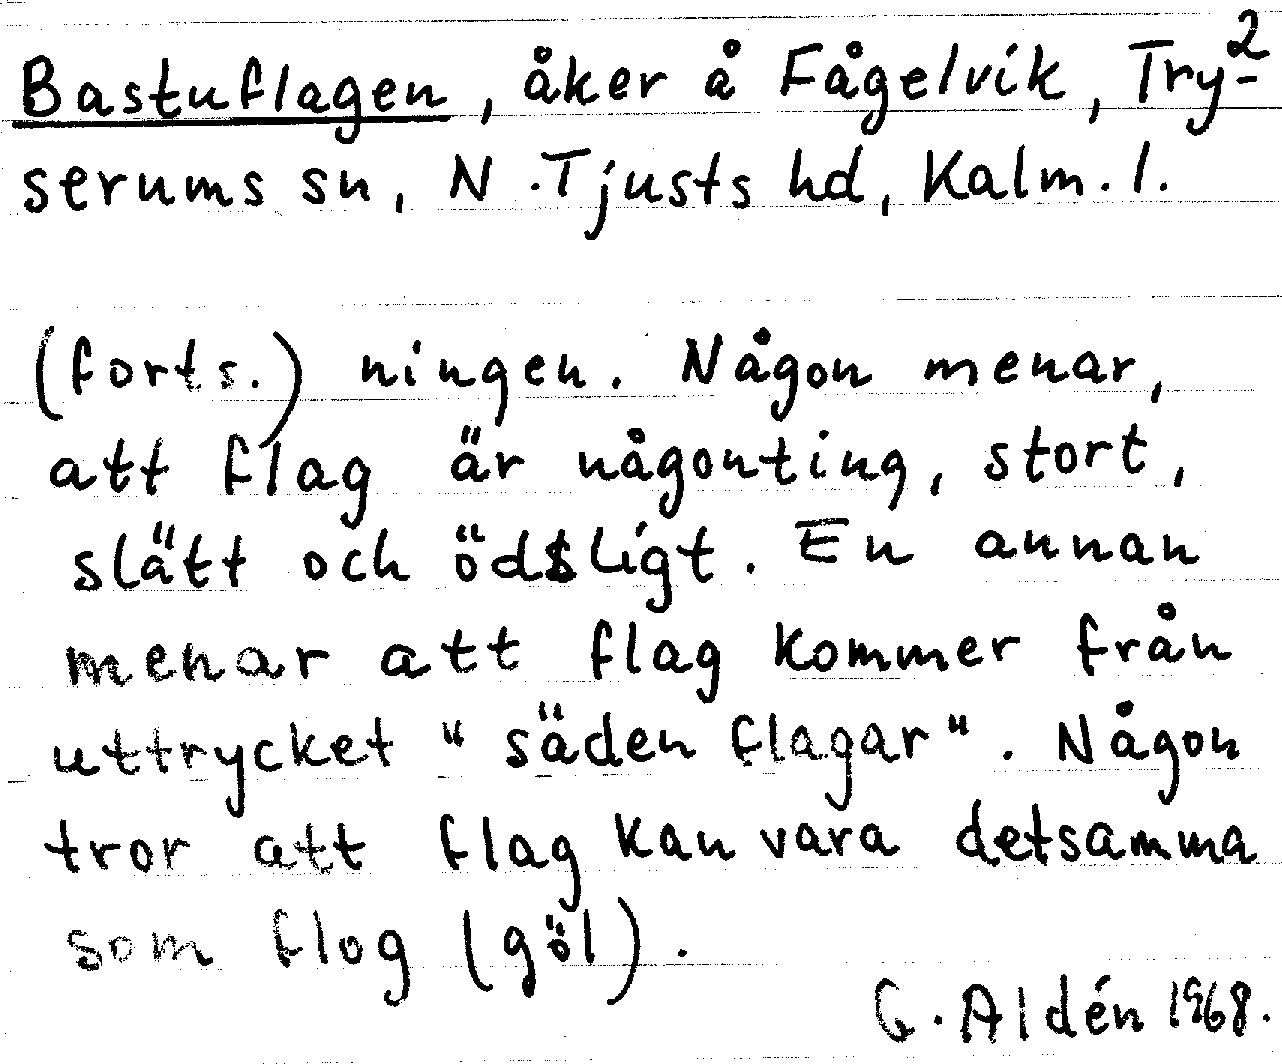 2
Bastuflagen, åker å Fågelvik, Try-
serums sn, N. Tjusts hd, Kalm. l.
(forts.) ningen. Någon menar,
att flag är någonting, stort,
slätt och ödsligt. En annan
menar att flag kommer från
uttrycket "säden flagar". Någon
tror att flag kan vara detsamma
som flog (göl).
G. Aldén 1968.